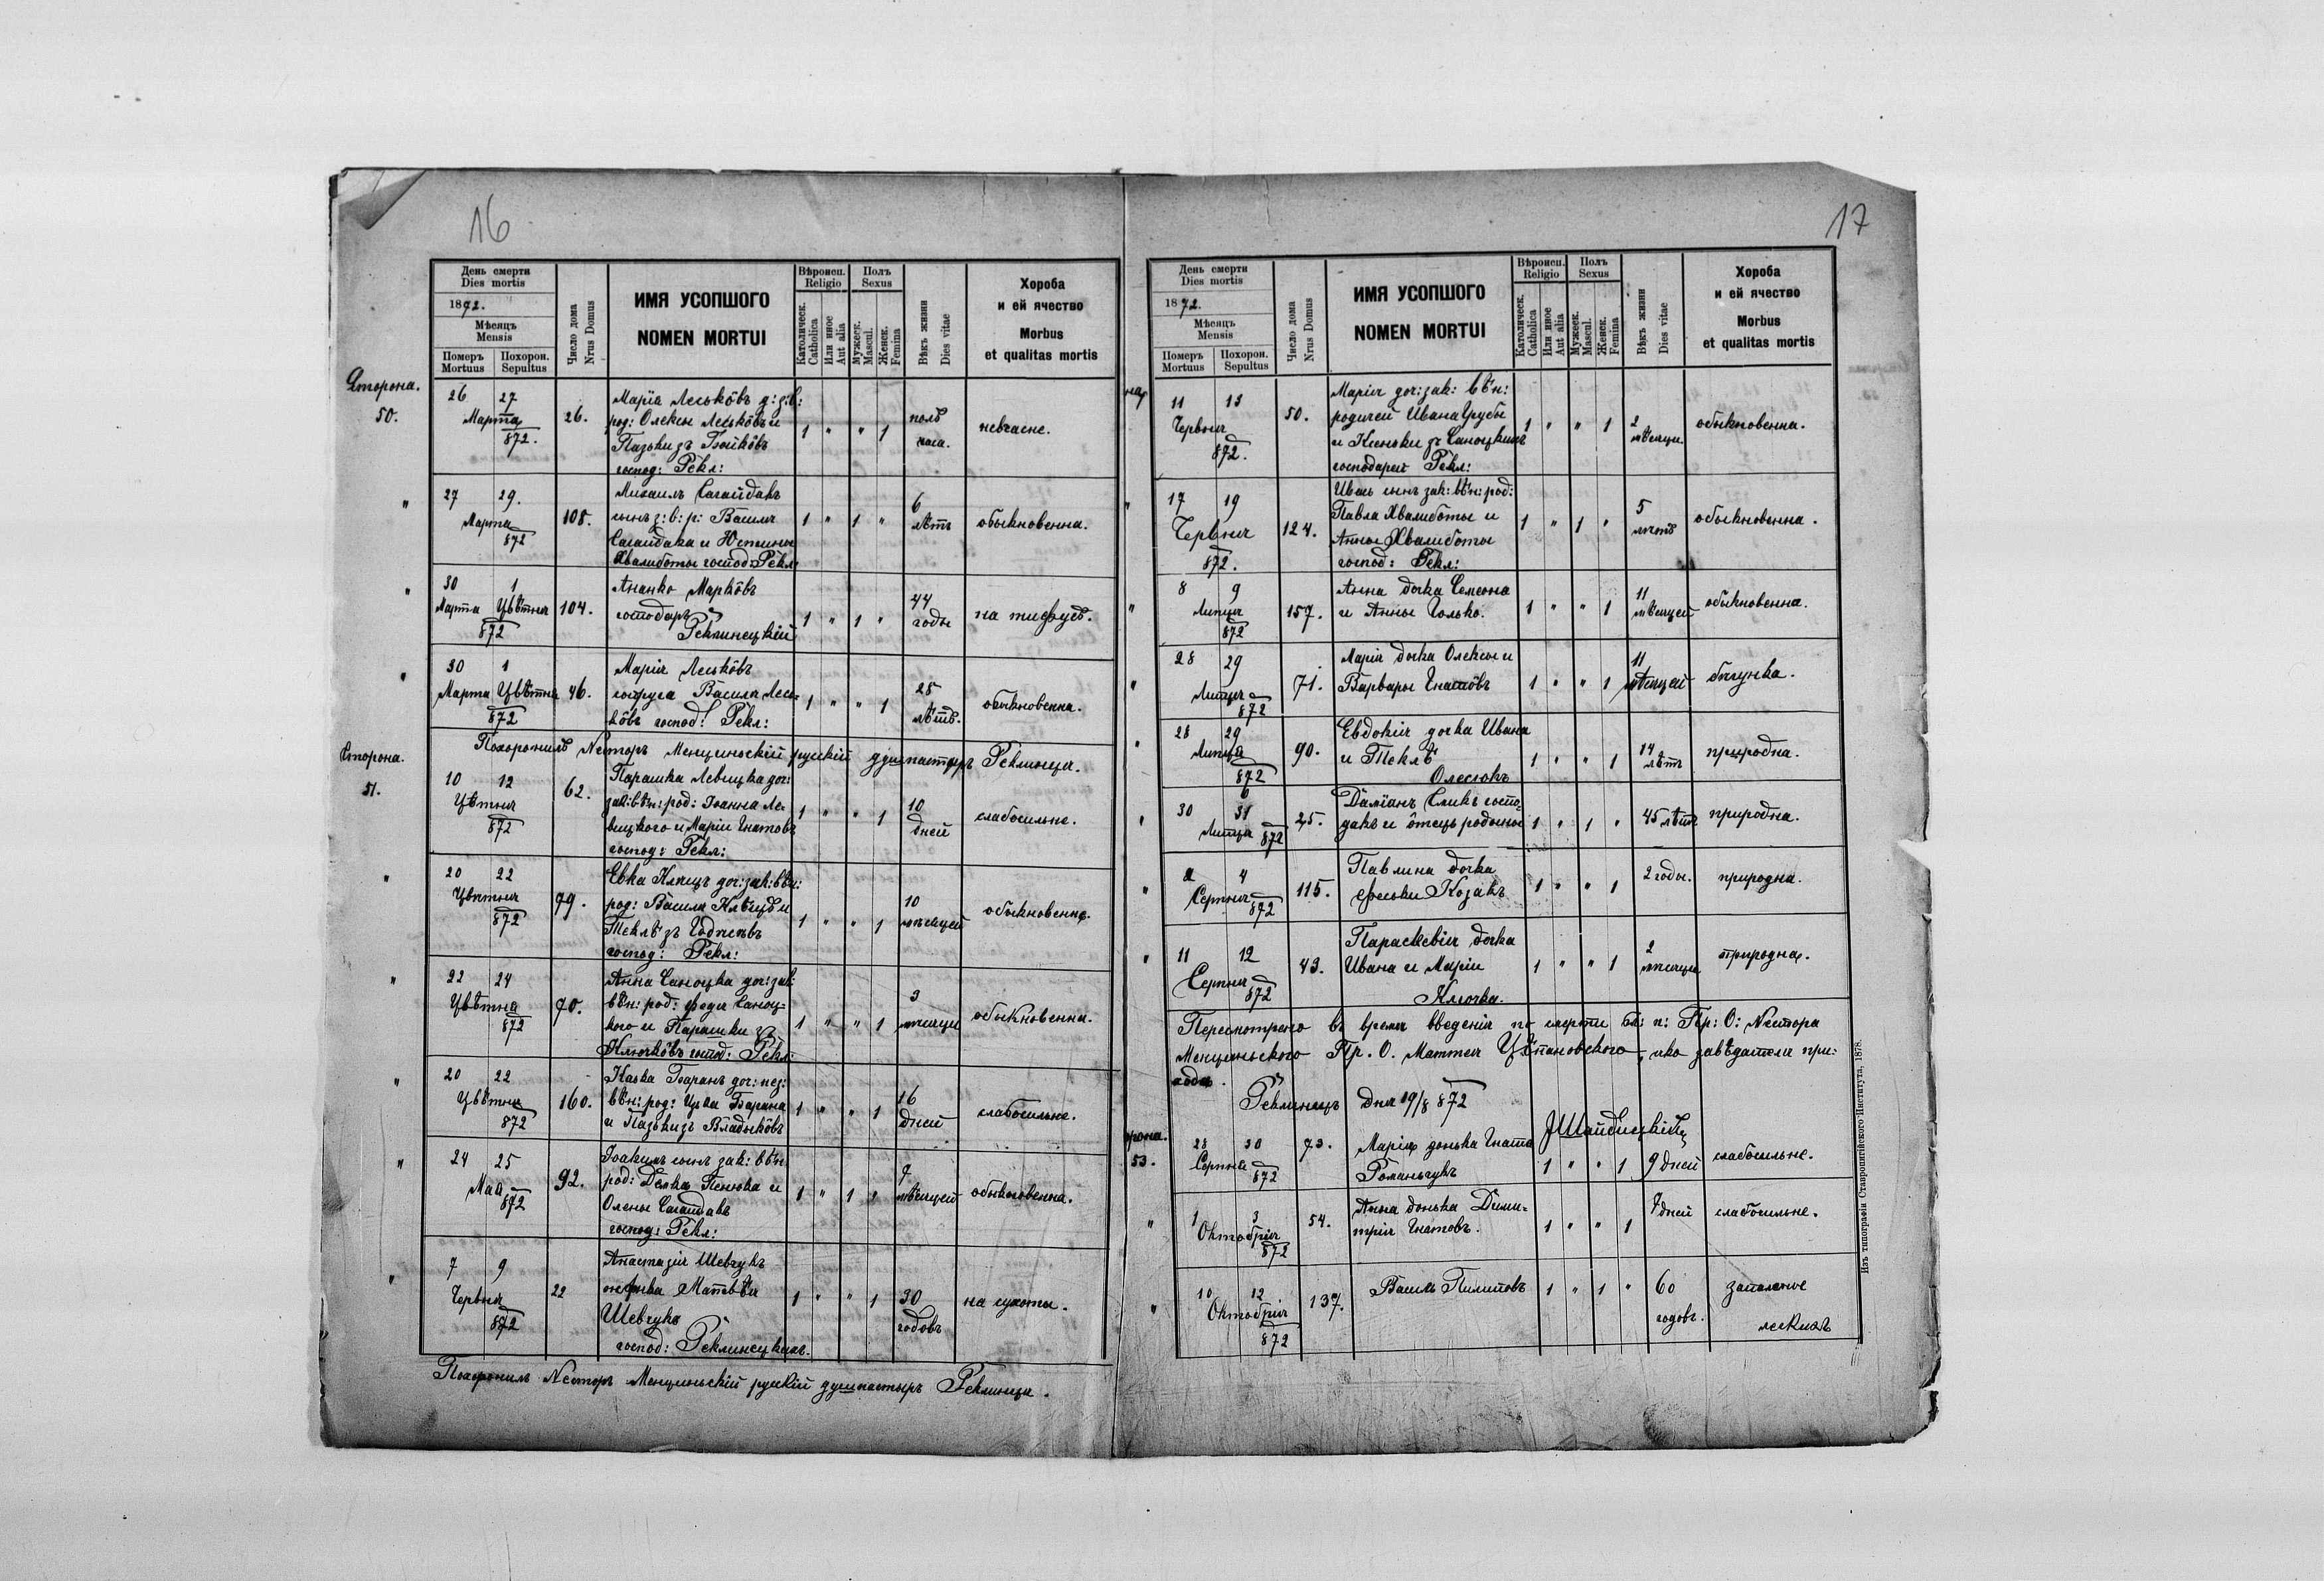 16
День смерти
Dies mortis
1872.
Мѣсяцъ
Mensis
Померъ Похорон.
Mortuus Sepultus
Число дома
Nrus Domus
ИМЯ УСОПШОГО
NOMEN MORTUI
Вѣроисп.
Religio
Католическ.
Catholica
Или иное
Aut alia
Полъ
Sexus
Мужеск.
Mascul.
Женск.
Femina
Вѣкъ жизни
Dies vitae
Хороба
и ей ячество
Morbus
et qualitas mortis
Сторона.
50.
26 27
Марта
872.
26.
Марія Леськôвъ д: з: в:
род: Олексы Леськôвъ и
Пазьки зъ Бойкôвъ
господ: Рекл:
1 " " 1
полъ
часа.
невчасне.
"
27 29.
Марта
872
108.
Михаилъ Сагайдакъ
сынъ з: в: р: Василя
Сагайдака и Юстины
Хвалиботы господ: Рекл:
1 " 1 "
6
лѣтъ
обыкновенна.
"
30 1
Марта Цвѣтня
872
104.
Ананко Маркôвъ
господаръ
Реклинецкій
1 " 1 "
44
годы
на тифусъ.
"
30 1
Марта Цвѣтня
872
46.
Марія Леськôвъ
супруга Василя Лесь-
кôвъ господ: Рекл:
1 " " 1
28
лѣтъ.
обыкновенна.
Похоронилъ Несторъ Менциньскій рускій душпастыръ Реклинця.
Сторона.
51.
10 12
Цвѣтня
872
62.
Парашка Левицка доч:
зак: вѣн: род: Іоанна Ле-
вицкого и Маріи Гнатовъ
господ: Рекл:
1 " " 1
10
дней
слабосильне.
"
20 22
Цвѣтня
872
79.
Евка Клѣщъ доч: зак: вѣн:
род: Василя Клѣщъ и
Теклѣ зъ
господ: Рекл:
1 " " 1
10
мѣсяцей
обыкновенна.
"
22 24
Цвѣтня
872
70.
Анна Саноцка доч: зак:
вѣн: род: Федя Саноц-
кого и Парашки зъ
Ключкôвъ господ: Рекл:
1 " " 1
3
мѣсяци
обыкновенна.
"
20 22
Цвѣтня
872
160.
Каська Баранъ доч: нез:
вѣн: род: Цька Барана
и Пазьки зъ Владыкôвъ
1 " " 1
16
дней
слабосильне.
"
24 25
Мая
872
92.
Іоакимъ сынъ зак: вѣн:
род: Демка Пенюка и
Олены Сагайдакъ
господ: Рекл:
1 " 1 "
7
мѣсяцей
обыкновенна.
"
7 9
Червня
872
22
Анастазія Шевчукъ
жѣнка Матвѣя
Шевчука
господ: Реклинецкихъ.
1 " " 1
30
годовъ
на сухоты.
Похоронилъ Несторъ Менциньскій рускій душпастыръ Реклинця.
17
День смерти
Dies mortis
1872.
Мѣсяцъ
Mensis
Померъ Похорон.
Mortuus Sepultus
Число дома
Nrus Domus
ИМЯ УСОПШОГО
NOMEN MORTUI
Вѣроисп.
Religio
Католическ.
Catholica
Или иное
Aut alia
Полъ
Sexus
Мужеск.
Mascul.
Женск.
Femina
Вѣкъ жизни
Dies vitae
Хороба
и ей ячество
Morbus
et qualitas mortis
на
11 13
Червня
872.
50.
Марія доч: зак: вѣн:
родичей Ивана Грубы
и Ксеньки зъ Саноцкихъ
господарей Рекл:
1 " " 1
2
мѣсяци.
обыкновенна.
"
17 19
Червня
872.
124.
Ивась сынъ зак: вѣн: род:
Павла Хвалиботы и
Анны Хвалиботы
господ: Рекл:
1 " 1 "
5
лѣтъ
обыкновенна.
"
8 9
Липця
872
157.
Анна дочка Семеона
и Анны Голько.
1 " " 1
11
мѣсяцей
обыкновенна.
"
28 29
Липця
872
71.
Марія дочка Олексы и
Варвары Гнатôвъ
1 " " 1
11
мѣсяцей
бѣгунка.
"
28 29
Липця
872
90.
Евдокія дочка Ивана
и Теклѣ
Олесюкъ
1 " " 1
14
лѣтъ
природна.
"
30 31
Липця 872
25.
Даміанъ Смикъ госпо-
дакъ и ôтецъ родины
1 " 1 "
45 лѣтъ
природна.
"
2 4
Серпня
872
115.
Павлина дочка
Феськи Козакъ
1 " " 1
2 годы.
природна.
"
11 12
Серпня
872
43.
Параскевія дочка
Ивана и Маріи
Ключка.
1 " " 1
2
мѣсяци
природна.
Пересмотрено въ время введенія по смерти бл: п: Пр: О: Нестора
Менциньского Пр. О. Маттея Цѣпановского, яко завѣдателя при-
хода.
Реклинець дня 19/8 872
рона.
53.
28 30
Серпня
872
73.
Марія донька Гната
Романчукъ
1 " " 1
9 дней
слабосильне.
"
1 3
Октобрія
872
54.
Анна донька Дими-
трія Гнатовъ.
1 " " 1
7 дней
слабосильне.
"
10 12
Октобрія
872
137.
Василь Пилиповъ
1 " 1 "
60
годовъ.
запаленье
легкихъ
Изъ типографіи Ставропигійского Института, 1878.